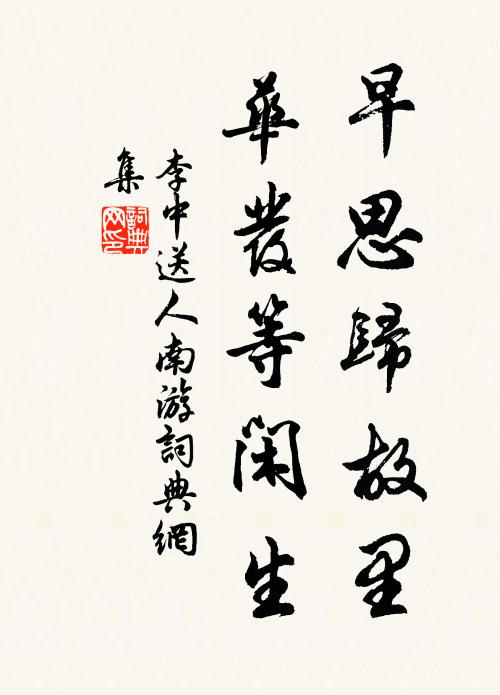 早思歸故里
華髮等閑生
李中送人南游詞典網
集
詞典
网印